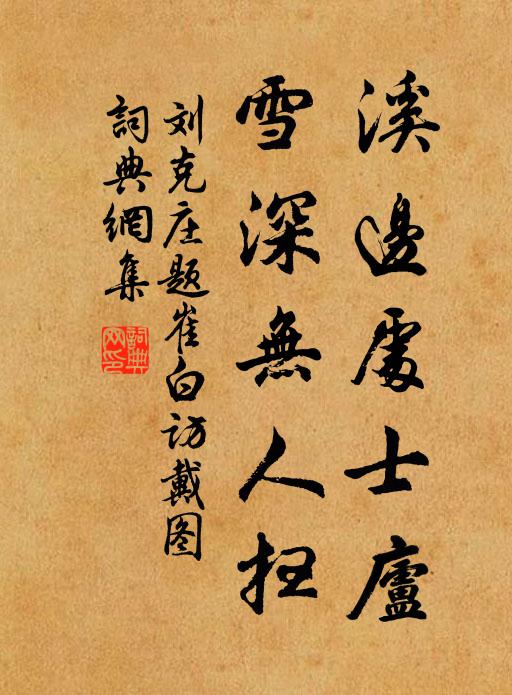 溪邊處士廬
雪深無人扫
刘克庄题崔白访戴图
詞典網集
詞典网印